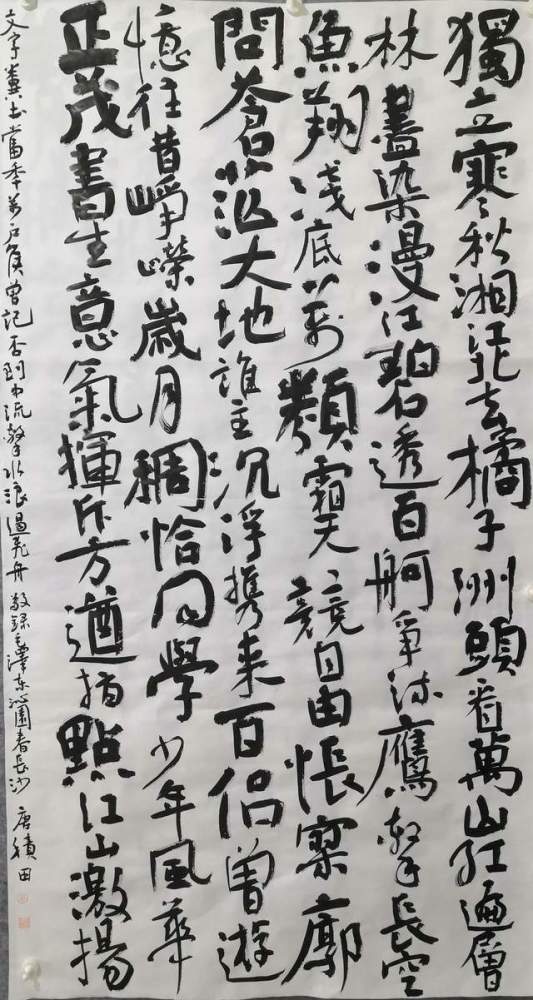 獨立寒秋湘江北去橘子洲頭看萬山紅遍層
林盡染漫江碧透百舸爭流鷹擊長空
魚翔淺底萬類霜天競自由悵寥廓
問蒼茫大地誰主沉浮携来百侶曾遊
憶往昔崢嶸歲月稠恰同學少年風華
正茂書生意氣揮斥方遒指點江山激揚
文字糞土當年萬户侯曾記否到中流擊水浪遏飛舟 敬録毛澤东沁園春長沙 唐積田